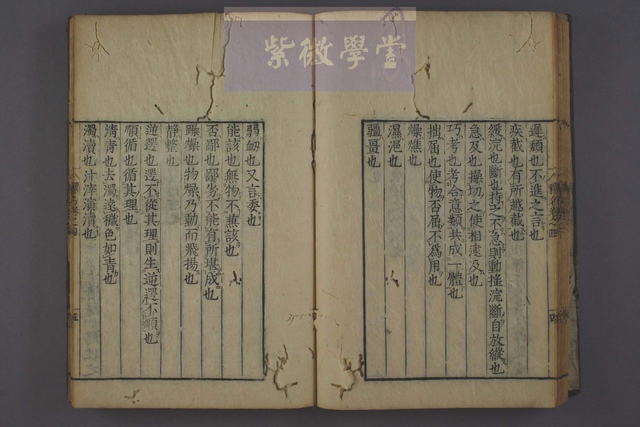 紫微學堂
遲頹也不進之言也
疾截也有所越截也
緩浣也斷也持之不急則動搖浣斷自放縱也
急及也操切之使相逮及也
巧考也考合異類共成一體也
拙屈也使物否屈不爲用也
燥焦也
濕浥也
彊畺也
弱衂也又言委也
能該也無物不兼該也
否鄙也鄙劣不能有所堪成也
躁燥也物燥乃動而飛揚也
靜整也
逆遌也不從其理則生遌不順也
順循也循其理也
清青也去濁遠穢色如青也
濁瀆也汁滓演瀆也